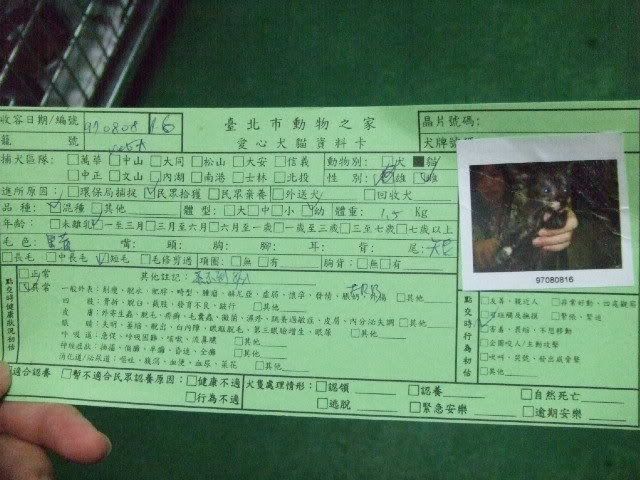 臺北市動物之家
愛心犬貓資料卡
收容日期/編號 970808 16
晶片號碼:
籠號
犬牌號
捕犬區隊: □萬華 □中山 □大同 □松山 □大安 □信義 動物別: □犬 ■貓
□中正 □文山 □內湖 □南港 □士林 □北投 性別: 雄 雌
進所原因: □環保局捕捉 ☑民眾拾獲 □民眾棄養 □外送犬 □回收犬
品種: ☑混種 □其他 體型: □大 □中 □小 幼 體重: 1.5 Kg
年齡: □未離乳 一至三月 □三月至六月 □六月至一歲 □一歲至三歲 □三至七歲 □七歲以上
毛色: 黑黃 嘴: 頭: 胸: 腳: 耳: 背: 尾:
□長毛 □中長毛 ☑短毛 □毛修剪過 項圈: □無 □有 胸背: □無 □有
點交時健康狀況初估
□正常 其他註記:
☑異常
一般外表: 削瘦、脫水、肥胖、畸型、腫瘤、虛弱、懷孕、發情、脹
四肢: 骨折、脫臼、截肢、發育不良、跛行 □其他
皮膚: 外寄生蟲、脫毛、疥癬、毛囊蟲、黴菌、濕疹、跳蚤過敏症、皮屑、內分泌失調 □其他
眼睛: 失明、萎縮、乾眼、白內障、眼瞼脫毛、第三眼瞼增生、眼屎 □其他
呼吸道: 急促、呼吸困難、咳嗽、流鼻膿 □其他
神經症狀: 抽搐、偏癱、半癱、昏迷、全癱 □其他
消化道/泌尿道: 嘔吐、拉瀉、血便、血尿、菜花 □其他
97080816
點交時行為初估
□友善、親近人 □非常好動、四處觀
可接觸及撫摸 □緊張、緊迫
□害羞、畏縮、不思移動
□企圖咬人/主動攻擊
□吠叫、哭號、發出威脅聲
□其他
□適合認養 □暫不適合民眾認養原因: □健康不適 □行為不適
犬隻處理情形: □認領 □認養 □自然死亡
□逃脫 □緊急安樂 □逾期安樂